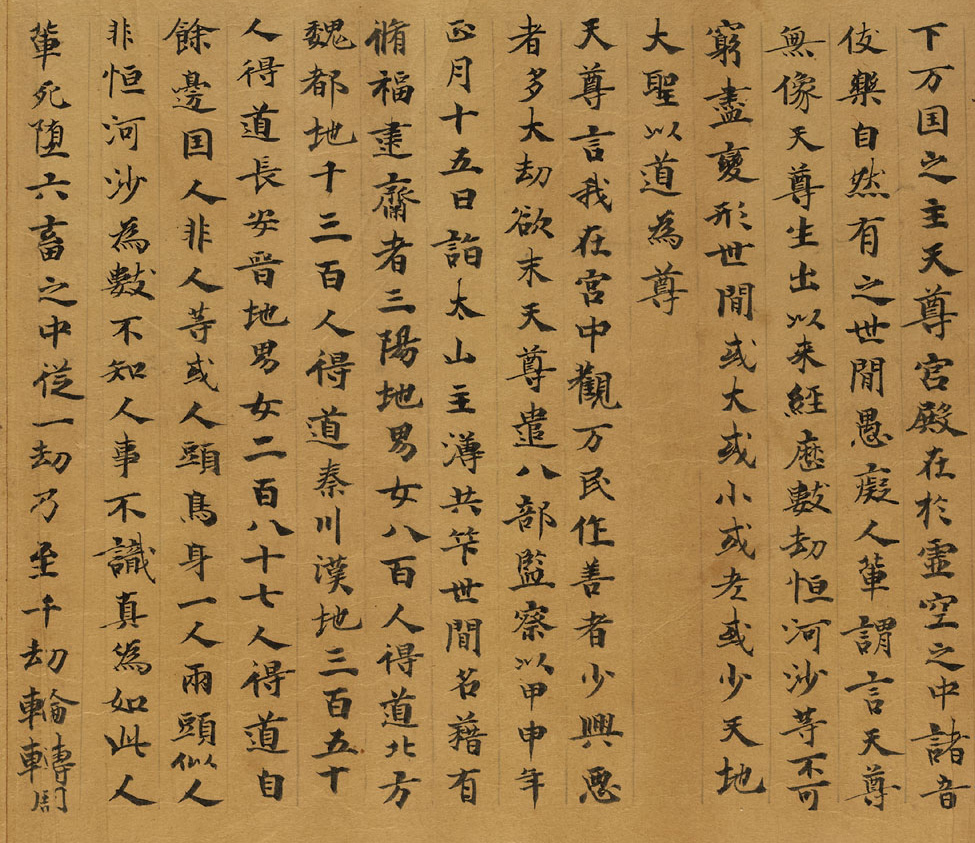 下万国之主天尊宫殿在於虚空之中諸音
伎樂自然有之世間愚癡人輩謂言天尊
無像天尊生出以来經歷數劫恒河沙等不可
窮盡變形世間或大或小或老或少天地
大聖以道為尊
天尊言我在宫中觀万民作善者少興惡
者多大劫欲末天尊遣八部監察以甲申年
正月十五日詣太山主薄共筭世間名藉有
脩福建齋者三陽地男女八百人得道北方
魏都地千三百人得道秦川漢地三百五十
人得道長安晋地男女二百八十七人得道自
餘邊国人非人等或人頭鳥身一人兩頭似人
非恒河沙為數不知人事不識真為如此人
輩死堕六畜之中從一劫乃至千劫輪轉周